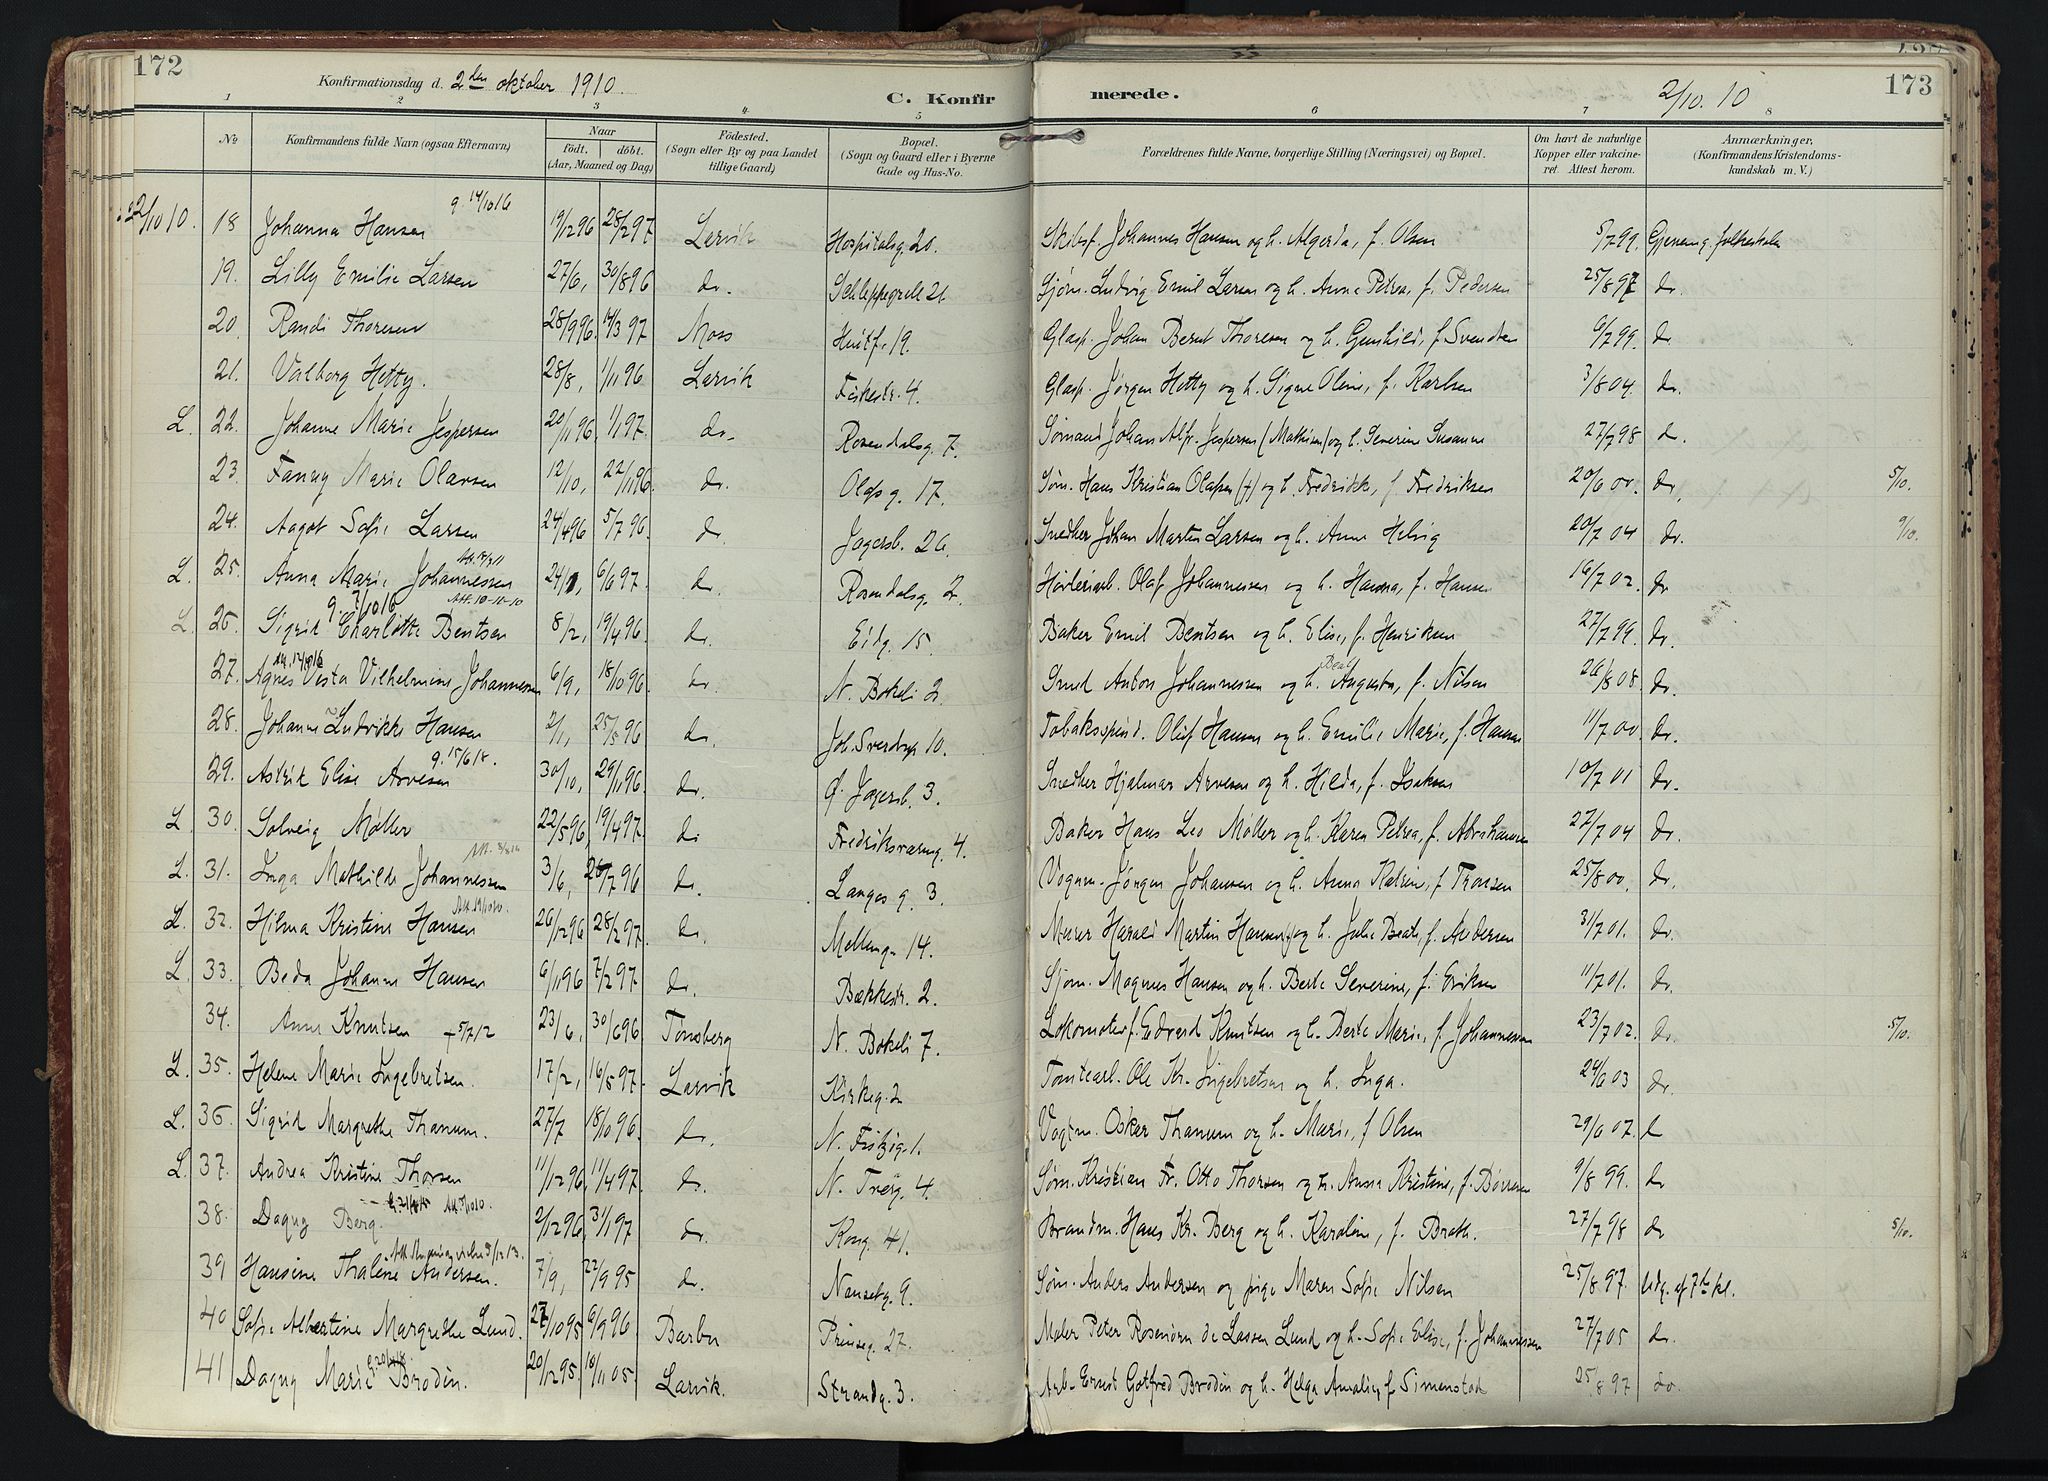 172
Konfirmationsdag d. 2den oktober 1910.
C. Konfir
merede.
2/10. 10
173
1 2 3 4 5 6 7 8
No
Konfirmandens fulde Navn (ogsaa Efternavn)
Naar
født. døbt.
(Aar, Maaned og Dag)
Fødested.
(Sogn eller By og paa Landet
tillige Gaard)
Bopæl.
(Sogn og Gaard eller i Byerne
Gade og Hus-No.
Forældrenes fulde Navne, borgerlige Stilling (Næringsvei) og Bopæl.
Om havt de naturlige
Kopper eller vakcine-
ret. Attest herom.
Anmærkninger.
(Konfirmandens Kristendoms-
kundskab m. V.)
g. 14/10 16
2/10 10. 18 Johanna Hansen 19/12 96 28/2 97 Larvik Hospitalsg. 20. Skibsf. Johannes Hansen og h. Algerda, f. Olsen 5/7 99. Gjennemg. folkeskolen
19. Lilly Emilie Larsen 27/6, 30/8 96 do. Schleppegrells 21. Sjøm. Ludvig Emil Larsen og h. Anne Petrea, f. Pedersen 25/8 97 do.
20. Randi Thoresen 28/9 96. 14/3 97 Moss Huitf. 19. Glasp. Johan Bernt Thoresen og h. Gunhild, f. Svendsen 6/7 99. do
21. Valborg Hetty. 28/8, 1/11 96 Larvik Fiskestr. 4. Glasp. Jørgen Hetty og h. Signe Oline, f. Karlsen 3/8 04. do.
L. 22. Johanne Marie Jespersen 20/11 96, 1/1 97. do. Rosendalsg. 7. Sømand Johan Alf. Jespersen (Mathisen) og h. Severine Susanne 27/7 98 do.
23. Fanny Marie Olavsen 12/10, 22/11 96. do. Olafs g. 17. Søm. Hans Kristian Olafsen (+) og h. Fredrikk, f. Fredriksen 20/6 00. do. 5/10.
24. Aagot Sofie Larsen 24/4 96 5/7 96. do. Jegersb. 26. Snedker Johan Martin Larsen og h. Anne Helvig 20/7 04 do. 9/10.
L. 25. Anna Marie Johannessen 24/1, 6/6 97. do. Rosendalsg. 2. Høvleriarb. Olaf Johannessen og h. Hanna, f. Hansen 16/7 02. do
g. 7/10 16 Att. 10-11-10
L. 26. Sigrid Charlotte Bentsen 8/2, 19/4 96. do. Eidg. 15. Baker Emil Bentsen og h. Elise, f. Henriksen 27/7 99. do.
27. Agnes Vesta Vilhelmine Johannessen 6/9, 18/10 96. do. N. Bøkeli 2. Smed Anton Johannessen og h. Beate Augusta, f. Nilsen 26/8 08. do.
28. Johanne Ludvikke Hansen 2/1, 25/5 96 do. Joh. Sverdrups 10. Tobaksspind. Oluf Hansen og h. Emilie Marie, f. Hansen 11/7 00. do.
g. 15/6 18.
29. Astrid Elise Arvesen 30/10, 29/11 96. do. Ø. Jegersb. 3. Snedker Hjalmar Arvesen og h. Hilda, f. Isaksen 10/7 01 do.
L. 30. Solveig Møller 22/5 96, 19/4 97. do. Fredriksværng. 4. Baker Hans Leo Møller og h. Karen Petrea, f. Abrahamsen 27/7 04 do.
L. 31. Inga Mathilde Johannessen 3/6, 26/7 96 do. Langes g. 3. Vognm. Jørgen Johansen og h. Anna Katrine, f. Transen 25/8 00. do.
Att. 19/10 10.
L. 32. Hilma Kristine Hansen 26/12 96 28/2 97. do. Mellemg. 14. Murer Harald Martin Hansen og h. Julie Beate, f. Andersen 31/7 01. do.
L. 33. Beda Johanne Hansen 6/11 96 7/2 97 do. Bækkestr. 2. Sjøm. Magnus Hansen og h. Berte Severine, f. Eriksen 11/7 01. do.
34. Anna Knutsen + 5/7 12 23/6, 30/6 96 Tønsberg N. Bøkeli 7. Lokomotivf. Edvard Knutsen og h. Berte Marie, f. Johannessen 23/7 02. do. 5/10.
L. 35. Helene Marie Ingebretsen. 17/2, 16/5 97. Larvik Kirkeg. 2 Tomtearb. Ole Kr. Ingebretsen og h. Inga. 24/6 03 do.
L. 36. Sigrid Margrethe Thanum. 27/7 18/10 96. do. N. Fritzøg. 1. Vogtm. Oskar Thanum og h. Marie, f. Olsen 29/6 07. do
L. 37. Andrea Kristine Thorsen 11/12 96, 11/4 97. do. N. Torvg. 4. Søm. Kristian Fr. Otto Thorsen og h. Anna Kristine, f. Børresen 9/8 99. do
38. Dagny Berg. Att. 5/10 10. 2/12 96, 31/1 97 do. Kong. 41. Brandm. Hans Kr. Berg og h. Karoline, f. Brath. 27/7 98 do 5/10.
39 Hansine Thaline Andersen. 7/9, 22/9 95 do. Nansetg. 9. Søm. Anders Andersen og pige Maren Sofie Nilsen 25/8 97. Udg. af 7de kl.
40 Sofie Albertine Margrethe Lund. 27/10 95 6/9 96. Barbu Prinseg. 27. Maler Peter Rosenørn de Lassen Lund og h. Sofie Elise, f. Johannessen 27/7 05 do.
41 Dagny Marie Brodin. 20/12 95. 10/11 05 Larvik. Strandg. 3. Arb. Ernst Gotfred Brodin og h. Helga Amalie, f. Simenstad 25/8 97 do.